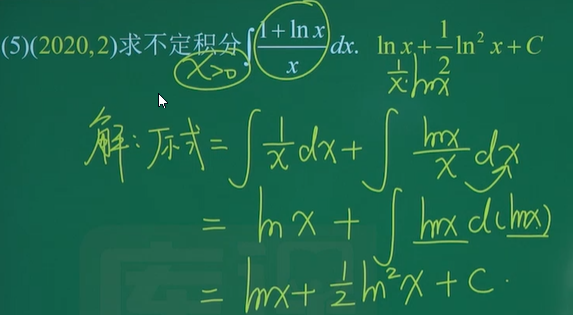 (5)(2020,2)求不定积分∫(1+ln x)/x dx. ln x+1/2 ln² x+C
x>0 1/x·lnx
解:原式=∫1/x dx+∫lnx/x dx
=lnx+∫lnx d(lnx)
=lnx+1/2 ln²x+C.